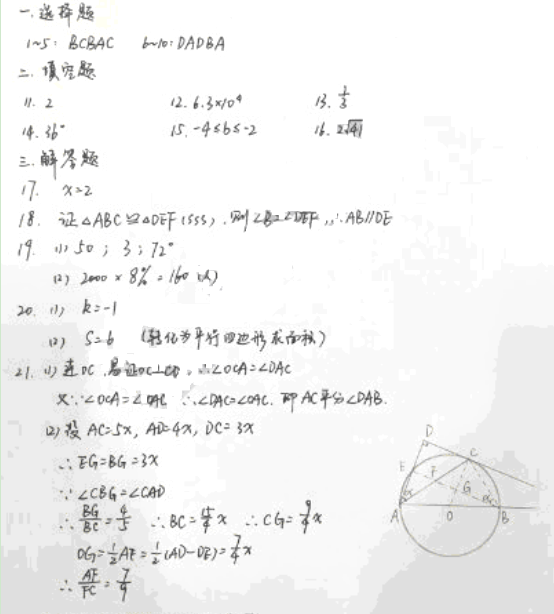 一.选择题
1~5: BCBAC 6~10: DADBA
二.填空题
11. 2 12. 6.3×10⁴ 13. 1/3
14. 36° 15. -4≤b≤-2 16. 2√41
三.解答题
17. x=2
18. 证△ABC≌△DEF(SSS),则∠B=∠DEF,∴AB∥DE
19. (1) 50; 3; 72°
(2) 2000×8%=160(人)
20. (1) k=-1
(2) S=6 (转化为平行四边形求面积)
21. (1) 连OC,易证OC⊥CD,∴∠OCA=∠DAC
又∵∠OCA=∠OAC ∴∠DAC=∠OAC.即AC平分∠DAB.
(2) 设AC=5x, AD=4x, DC=3x
∴EG=BG=3x
∵∠CBG=∠CAD
∴BG/BC=4/5 ∴BC=15/4x ∴CG=9/4x
OG=1/2AE=1/2(AD-DE)=7/8x
∴AF/FC=7/9
D
C
E
F
G
α
α
A
O
B